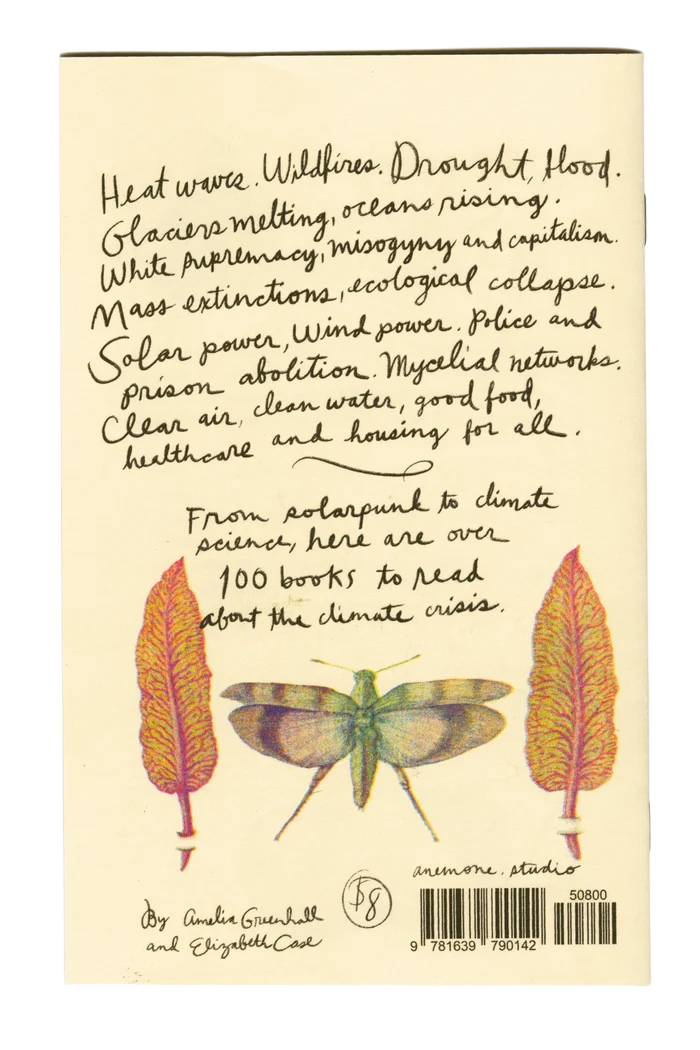 Heat waves. Wildfires. Drought, flood.
Glaciers melting, oceans rising.
White supremacy, misogyny and capitalism.
Mass extinctions, ecological collapse.
Solar power, Wind power. Police and
prison abolition. Mycelial networks.
Clear air, clean water, good food,
healthcare and housing for all.
From solarpunk to climate
science, here are over
100 books to read
about the climate crisis.
anemone.studio
$8
By Amelia Greenhall
and Elizabeth Case
50800
9 781639 790142